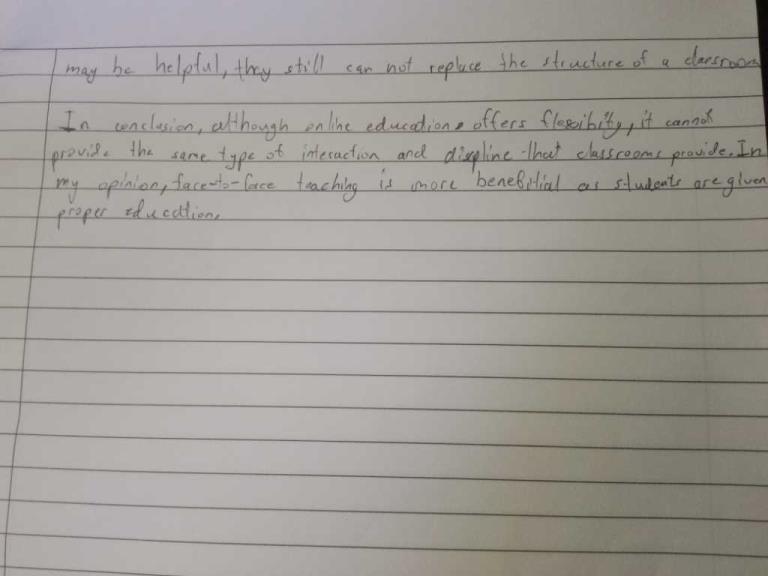 may be helpful, they still can not replace the structure of a classroom
In conclusion, although online education offers flexibility, it cannot
provide the same type of interaction and disipline that classrooms provide. In
my opinion, face-to-face teaching is more benefitial as students are given
proper education.